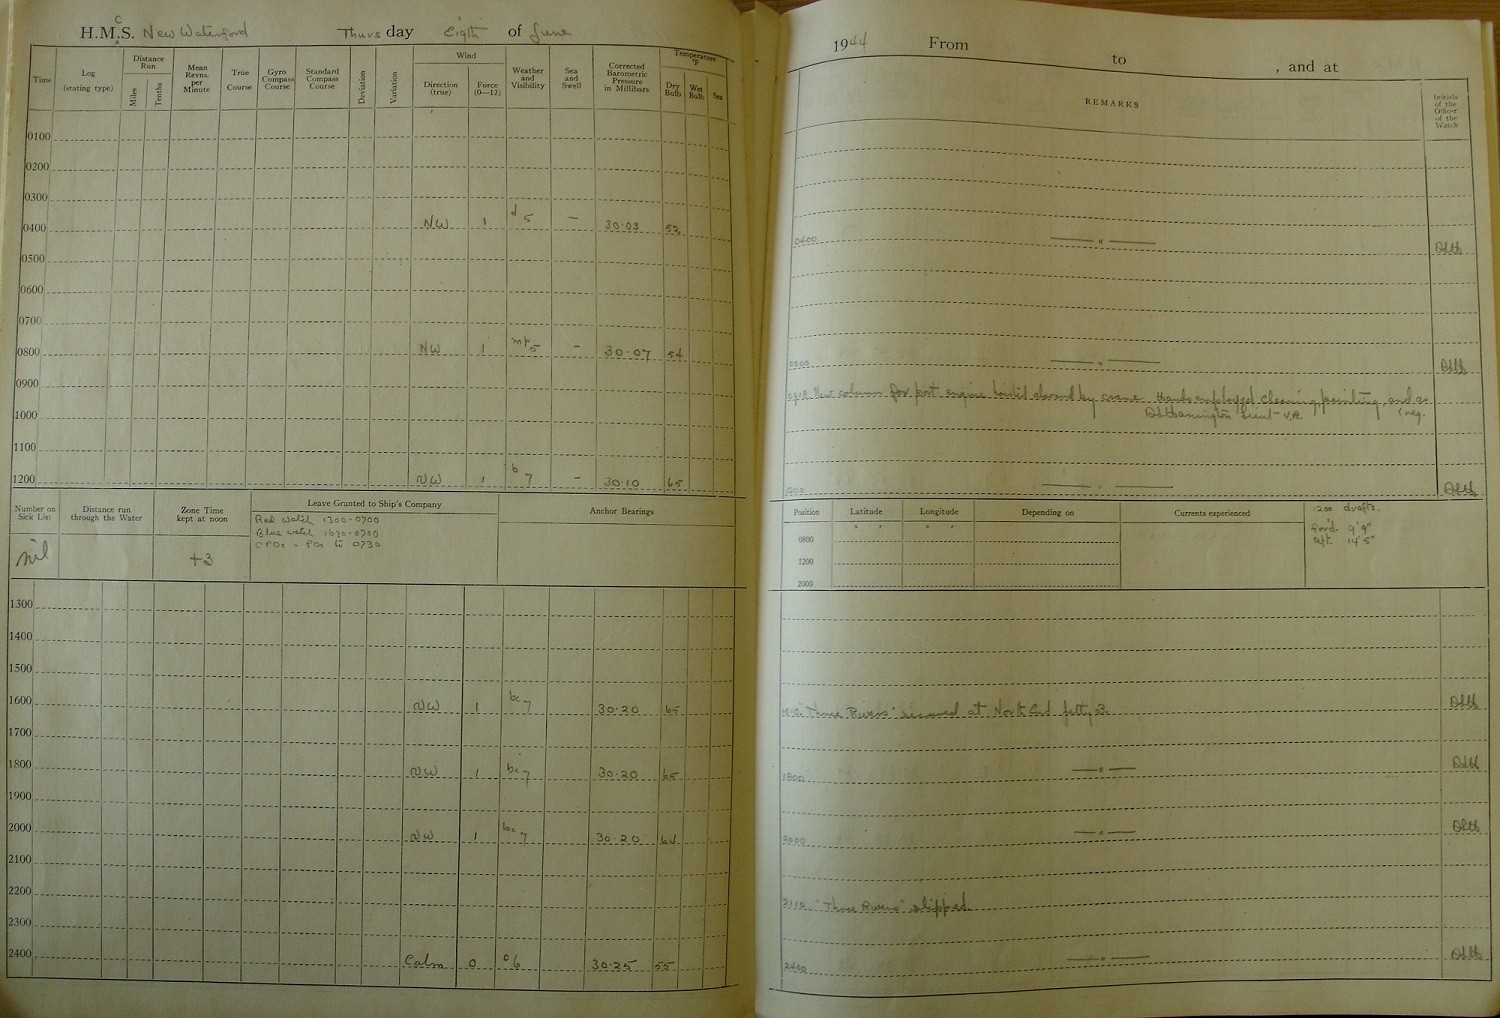 H.M.C.S. New Waterford Thurs day Eigth of June
Time Log (stating type) Distance Run Miles Tenths Mean Revns. per Minute True Course Gyro Compass Course Standard Compass Course Deviation Variation Wind Direction (true) Force (0—12) Weather and Visibility Sea and Swell Corrected Barometric Pressure in Millibars Temperature °F Dry Bulb Wet Bulb Sea
0100
0200
0300
0400 NW 1 d 5 – 30·03 52
0500
0600
0700
0800 NW 1 mp 5 – 30·07 54
0900
1000
1100
1200 NW 1 b 7 – 30·10 65
Number on Sick List Distance run through the Water Zone Time kept at noon Leave Granted to Ship's Company Anchor Bearings
nil +3
Red Watch 1300-0700
Blue watch 1630-0700
CPOs - POs to 0730
1300
1400
1500
1600 NW 1 bc 7 30·20 65
1700
1800 NW 1 bc 7 30·20 65
1900
2000 NW 1 bc 7 30·20 64
2100
2200
2300
2400 Calm 0 c 6 30·25 55
1944 From to , and at
REMARKS Initials of the Officer of the Watch
0400 — " —
0800 — " —
New column for port engine hoisted aboard by crane. Hands employed cleaning, painting, and as
Lieut V.R. (req.
1200 — " —
Position Latitude Longitude Depending on Currents experienced
0800
1200
2000
1200 drafts.
for'd. 9' 9"
aft. 14' 5"
"Three Rivers" secured at North End Jetty 3.
1800 — " —
2000 — " —
2110 "Three Rivers" slipped.
2400 — " —